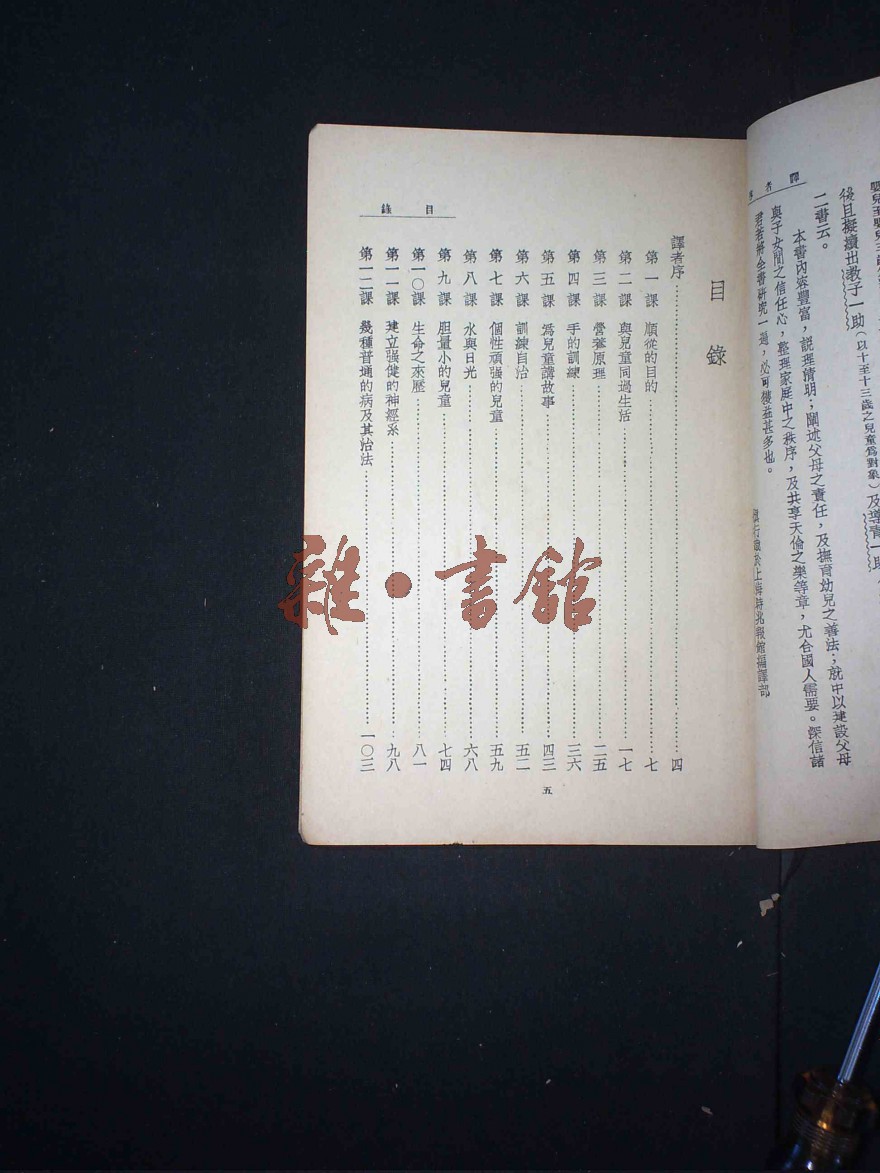 後且擬續出教子一助（以十至十三歲之兒童爲對象）及導青一助
二書云。
本書內容豐富，說理清明；闡述父母之責任，及撫育幼兒之善法；就中以建設父母
與子女間之信任心，整理家庭中之秩序，及共享天倫之樂等章，尤合國人需要。深信諸
君若將全書研究一過，必可獲益甚多也。
於上海時兆報館編譯部
譯者
目錄
譯者序 四
第一課 順從的目的 七
第二課 與兒童同過生活 一七
第三課 營養原理 二五
第四課 手的訓練 三六
第五課 爲兒童講故事 四三
第六課 訓練自治 五二
第七課 個性頑強的兒童 五九
第八課 水與日光 六八
第九課 胆量小的兒童 七四
第一〇課 生命之來歷 八一
第一一課 建立强健的神經系 九八
第一二課 幾種普通的病及其治法 一〇三
目錄
五
雜·書館